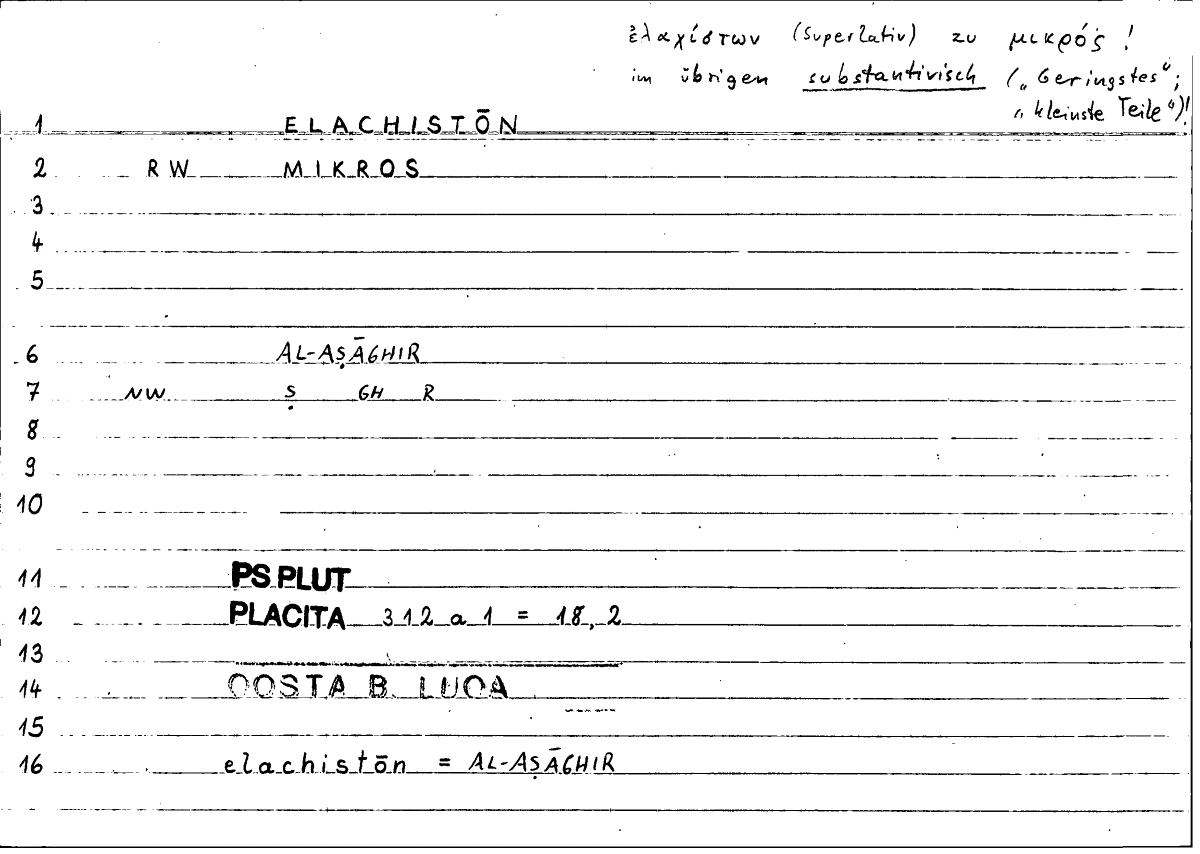 ἐλαχίστων (Superlativ) zu μικρός !
im übrigen substantivisch („Geringstes“;
„kleinste Teile“)!
1 ELACHISTŌN
2 RW MIKROS
3
4
5
6 AL-AṢĀGHIR
7 NW Ṣ GH R
8
9
10
11 PS PLUT
12 PLACITA 312 a 1 = 18, 2
13
14 QOSTA B. LUQA
15
16 elachistōn = AL-AṢĀGHIR